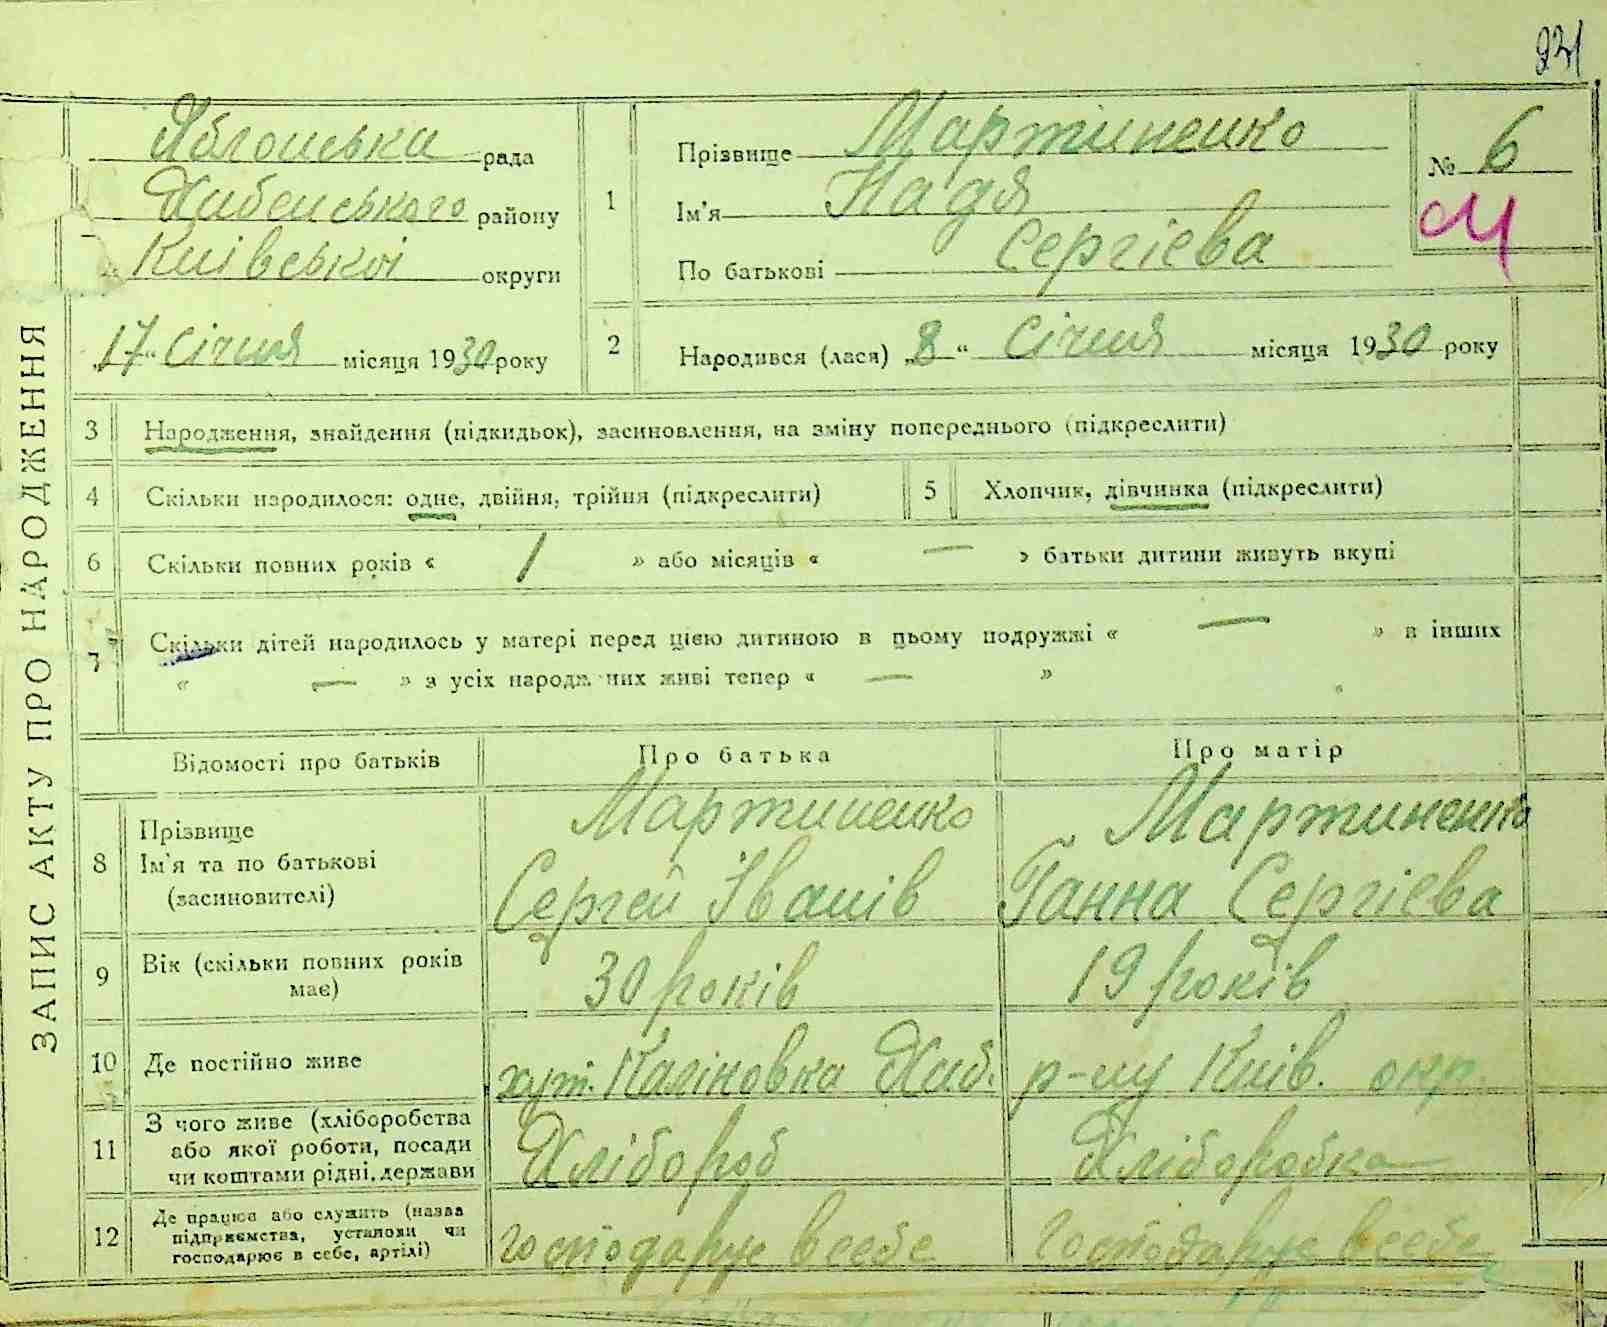 231
ЗАПИС АКТУ ПРО НАРОДЖЕННЯ
Яблонська рада
Хабенського району
Київської округи
„17“ Січня місяця 1930 року
1
Прізвище Мартиненко
Ім'я Надя
По батькові Сергієва
№ 6
2
Народився (лася) „8“ Січня місяця 1930 року
3 Народження, знайдення (підкидьок), засиновлення, на зміну попереднього (підкреслити)
4 Скільки народилося: одне, двійня, трійня (підкреслити) 5 Хлопчик, дівчинка (підкреслити)
6 Скільки повних років « 1 » або місяців « — » батьки дитини живуть вкупі
7 Скільки дітей народилось у матері перед цією дитиною в цьому подружжі « — » в інших
« — » з усіх народжених живі тепер « — »
Відомості про батьків Про батька Про матір
8 Прізвище Мартиненко Мартиненко
Ім'я та по батькові Сергей Іванів Ганна Сергієва
(засиновителі)
9 Вік (скільки повних років має) 30 років 19 років
10 Де постійно живе хут. Каліновка Хаб. р-ну Київ. окр.
11 З чого живе (хліборобства Хлібороб Хліборобка
або якої роботи, посади
чи коштами рідні, держави
12 Де працює або служить (назва господарує в себе господарує в себе
підприємства, установи чи
господарює в себе, артілі)